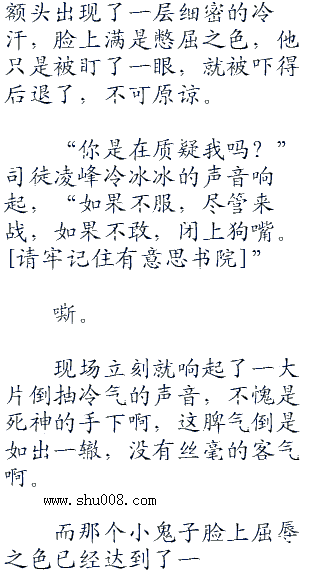 额头出现了一层细密的冷
汗，脸上满是憋屈之色，他
只是被盯了一眼，就被吓得
后退了，不可原谅。
“你是在质疑我吗？”
司徒凌峰冷冰冰的声音响
起，“如果不服，尽管来
战，如果不敢，闭上狗嘴。
[请牢记住有意思书院]”
嘶。
现场立刻就响起了一大
片倒抽冷气的声音，不愧是
死神的手下啊，这脾气倒是
如出一辙，没有丝毫的客气
啊。
www.shu008.com
而那个小鬼子脸上屈辱
之色已经达到了一